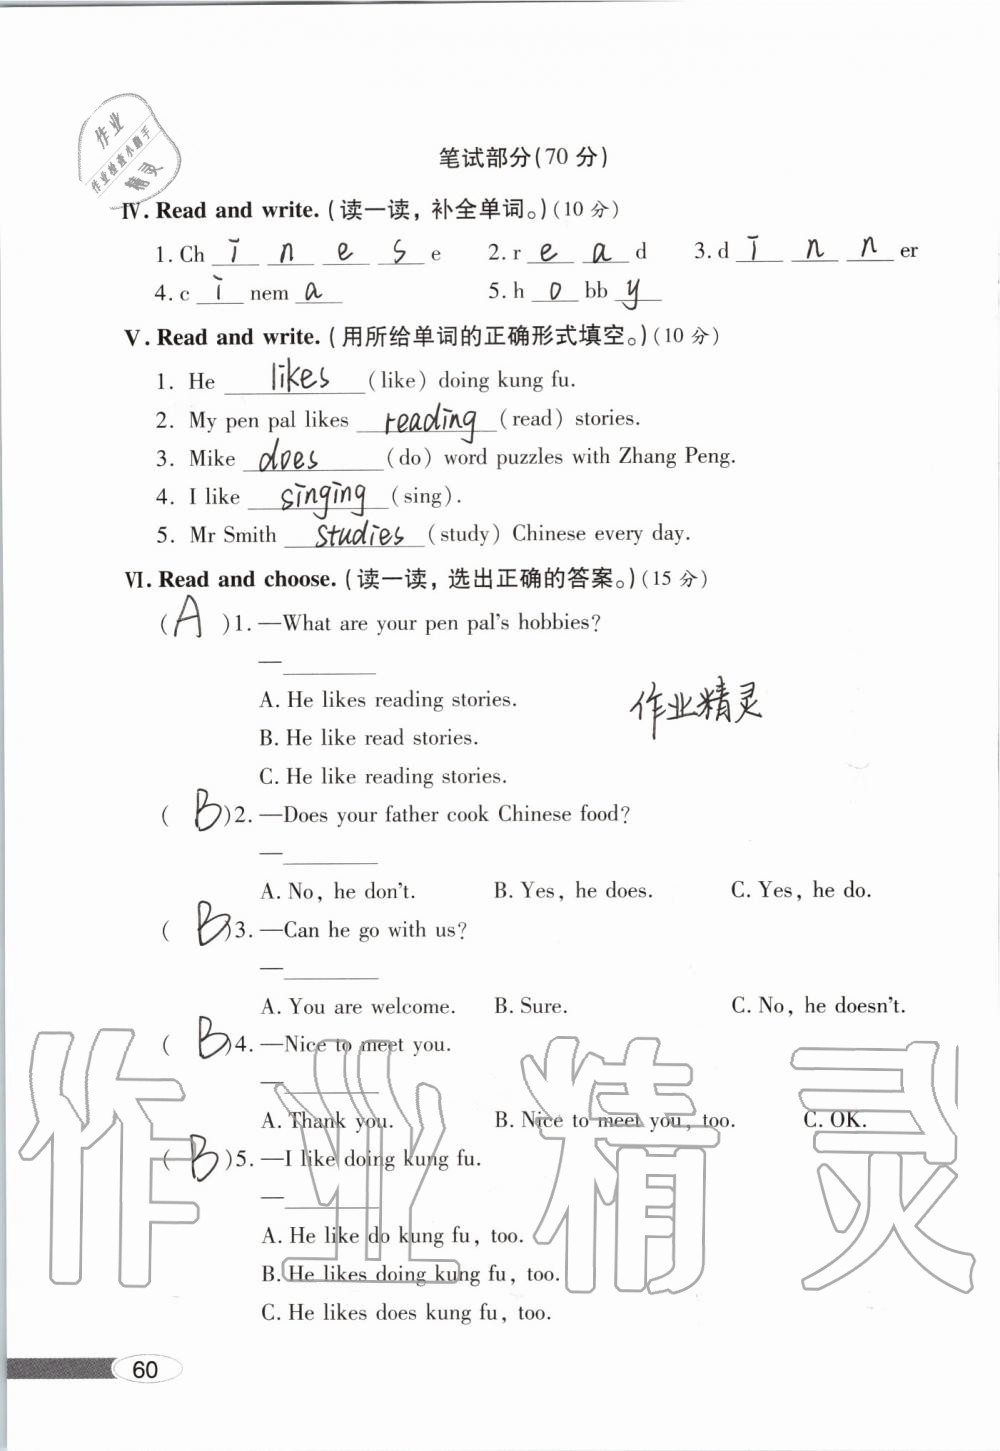 作业
作业检查小助手
精灵
笔试部分(70分)
Ⅳ. Read and write. (读一读，补全单词。)(10分)
1. Ch i n e s e 2. r e a d 3. d i n n er
4. c i nem a 5. h o bb y
Ⅴ. Read and write. (用所给单词的正确形式填空。)(10分)
1. He likes (like) doing kung fu.
2. My pen pal likes reading (read) stories.
3. Mike does (do) word puzzles with Zhang Peng.
4. I like singing (sing).
5. Mr Smith studies (study) Chinese every day.
Ⅵ. Read and choose. (读一读，选出正确的答案。)(15分)
(A)1. —What are your pen pal's hobbies?
—________
A. He likes reading stories.
作业精灵
B. He like read stories.
C. He like reading stories.
(B)2. —Does your father cook Chinese food?
—________
A. No, he don't. B. Yes, he does. C. Yes, he do.
(B)3. —Can he go with us?
—________
A. You are welcome. B. Sure. C. No, he doesn't.
(B)4. —Nice to meet you.
—________
A. Thank you. B. Nice to meet you, too. C. OK.
(B)5. —I like doing kung fu.
—________
A. He like do kung fu, too.
B. He likes doing kung fu, too.
C. He likes does kung fu, too.
作业精灵
60